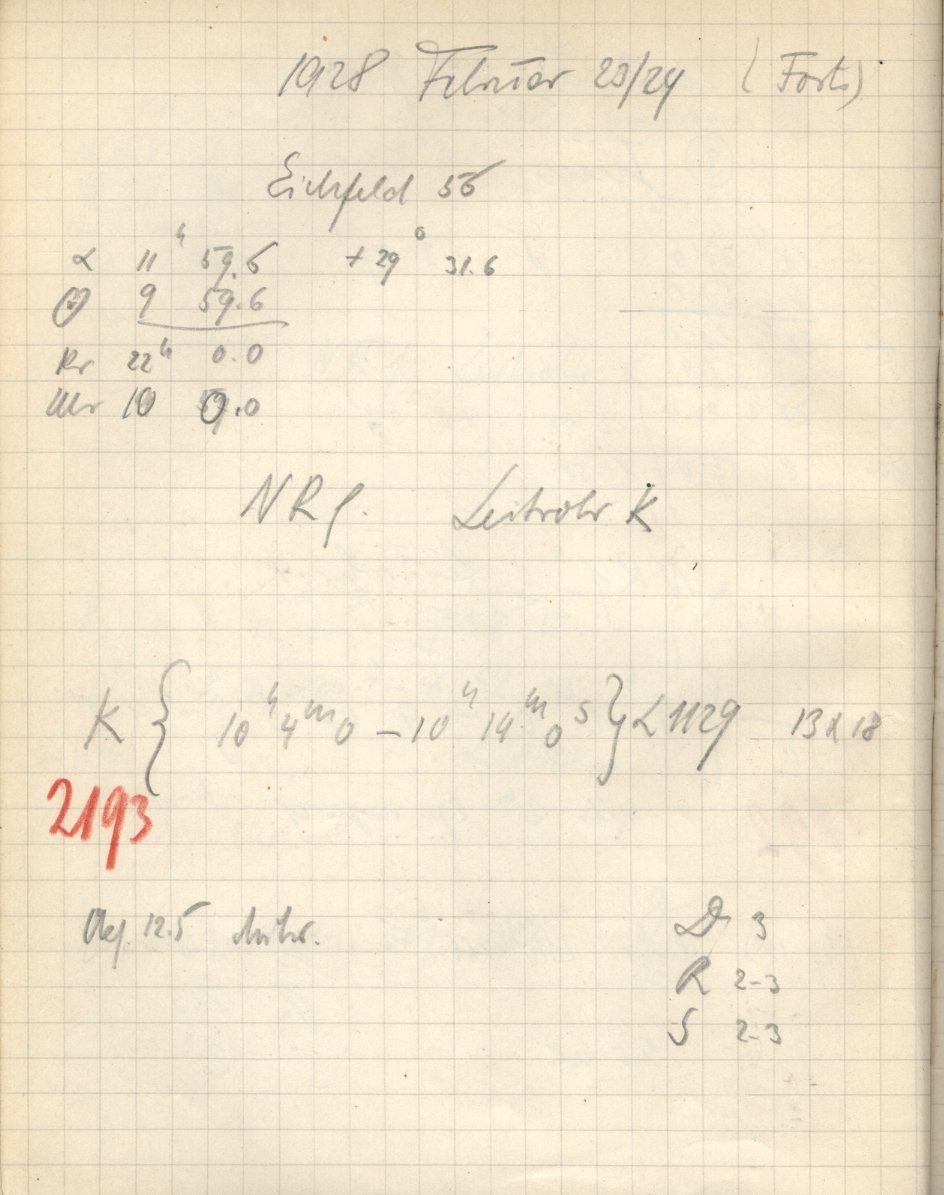 1928 Februar 23/24 (Forts)
Eichfeld 56
α 11ʰ 59.6 +29° 31.6
⊙ 9 59.6
Kr 22ʰ 0.0
Uhr 10 0.0
NRf. Leitrohr K
K { 10ʰ 4ᵐ 0 – 10ʰ 14ᵐ 0ˢ } L 1129 13x18
2193
12.5 D 3
R 2-3
S 2-3